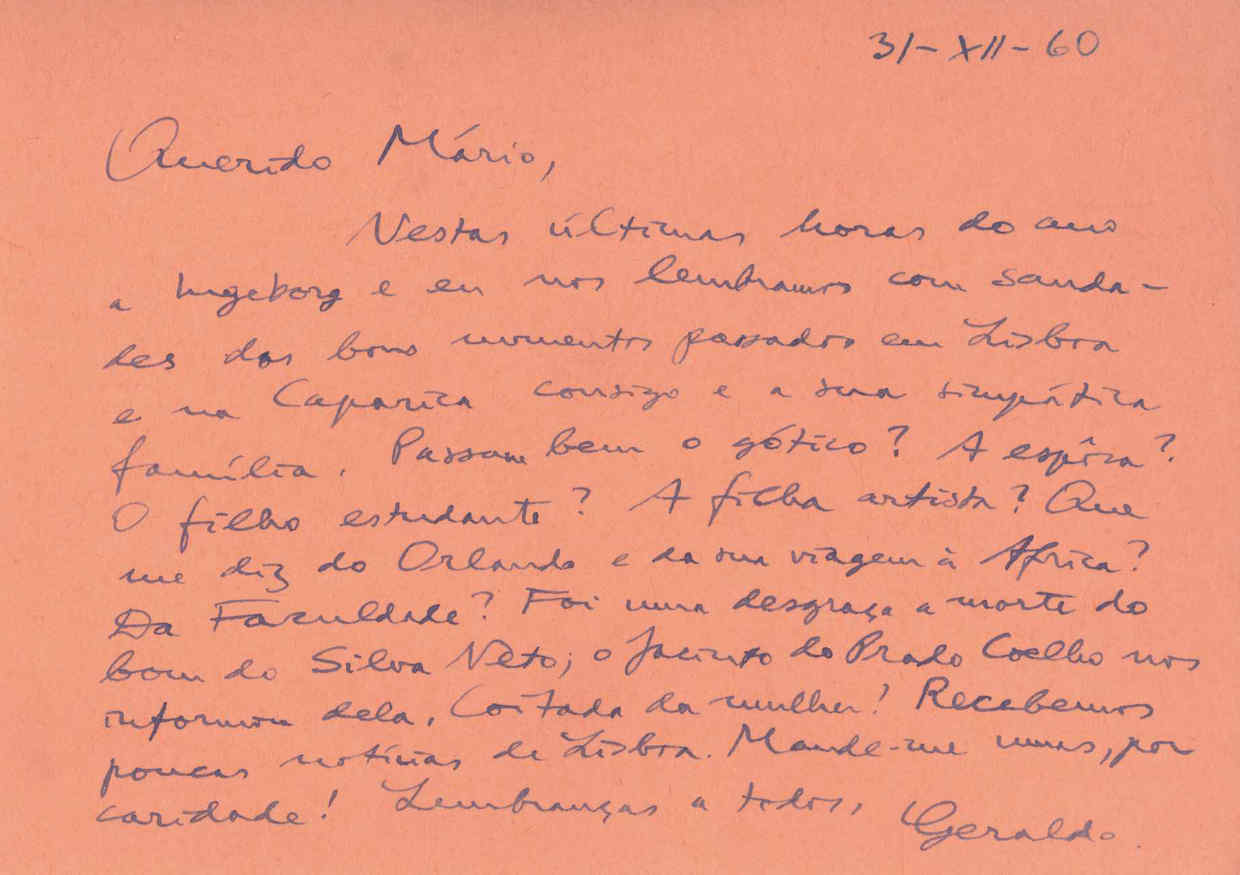 31-XII-60
Querido Mário,
Nestas últimas horas do ano
a Ingeborg e eu nos lembramos com sauda-
des dos bons momentos passados em Lisboa
e na Caparica consigo e a sua simpática
família. Passam bem o gótico? A espôsa?
O filho estudante? A filha artista? Que
me diz do Orlando e da sua viagem à África?
Da Faculdade? Foi uma desgraça a morte do
bom do Silva Neto; o Jacinto do Prado Coelho nos
informou dela. Coitada da mulher! Recebemos
poucas notícias de Lisboa. Mande-me umas, por
caridade! Lembranças a todos, Geraldo.